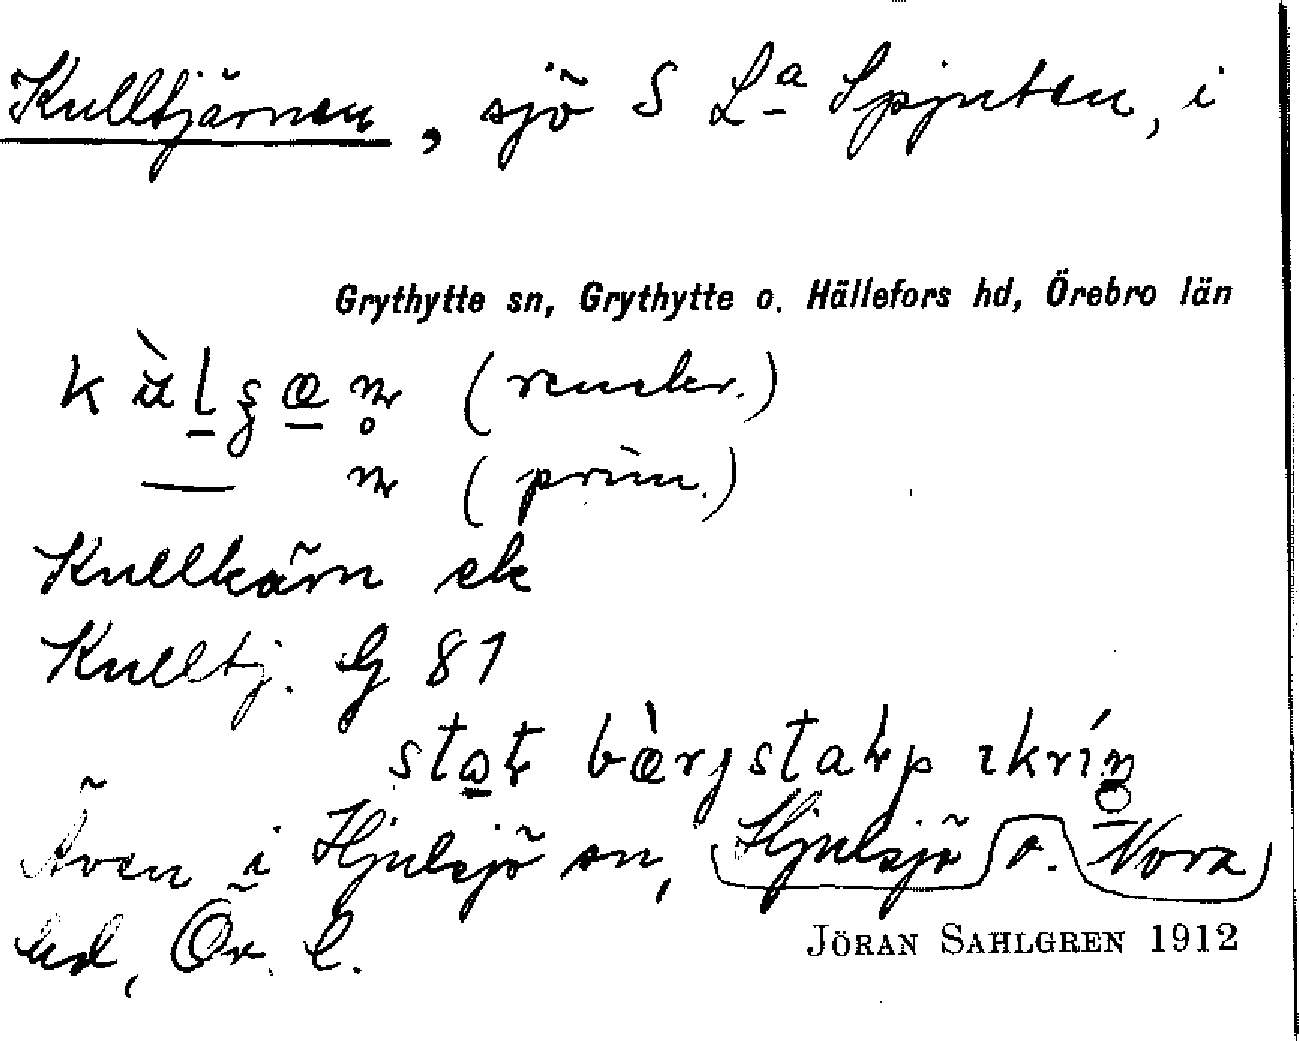 Kulltjärnen, sjö S La Spjuten, i
Grythytte sn, Grythytte o. Hällefors hd, Örebro län
(renskr.)
(prim.)
Kullkärn ek
Kulltj. G 81
Även i Hjulsjö sn, Hjulsjö o. Nora
hd, Ör. l.
JÖRAN SAHLGREN 1912